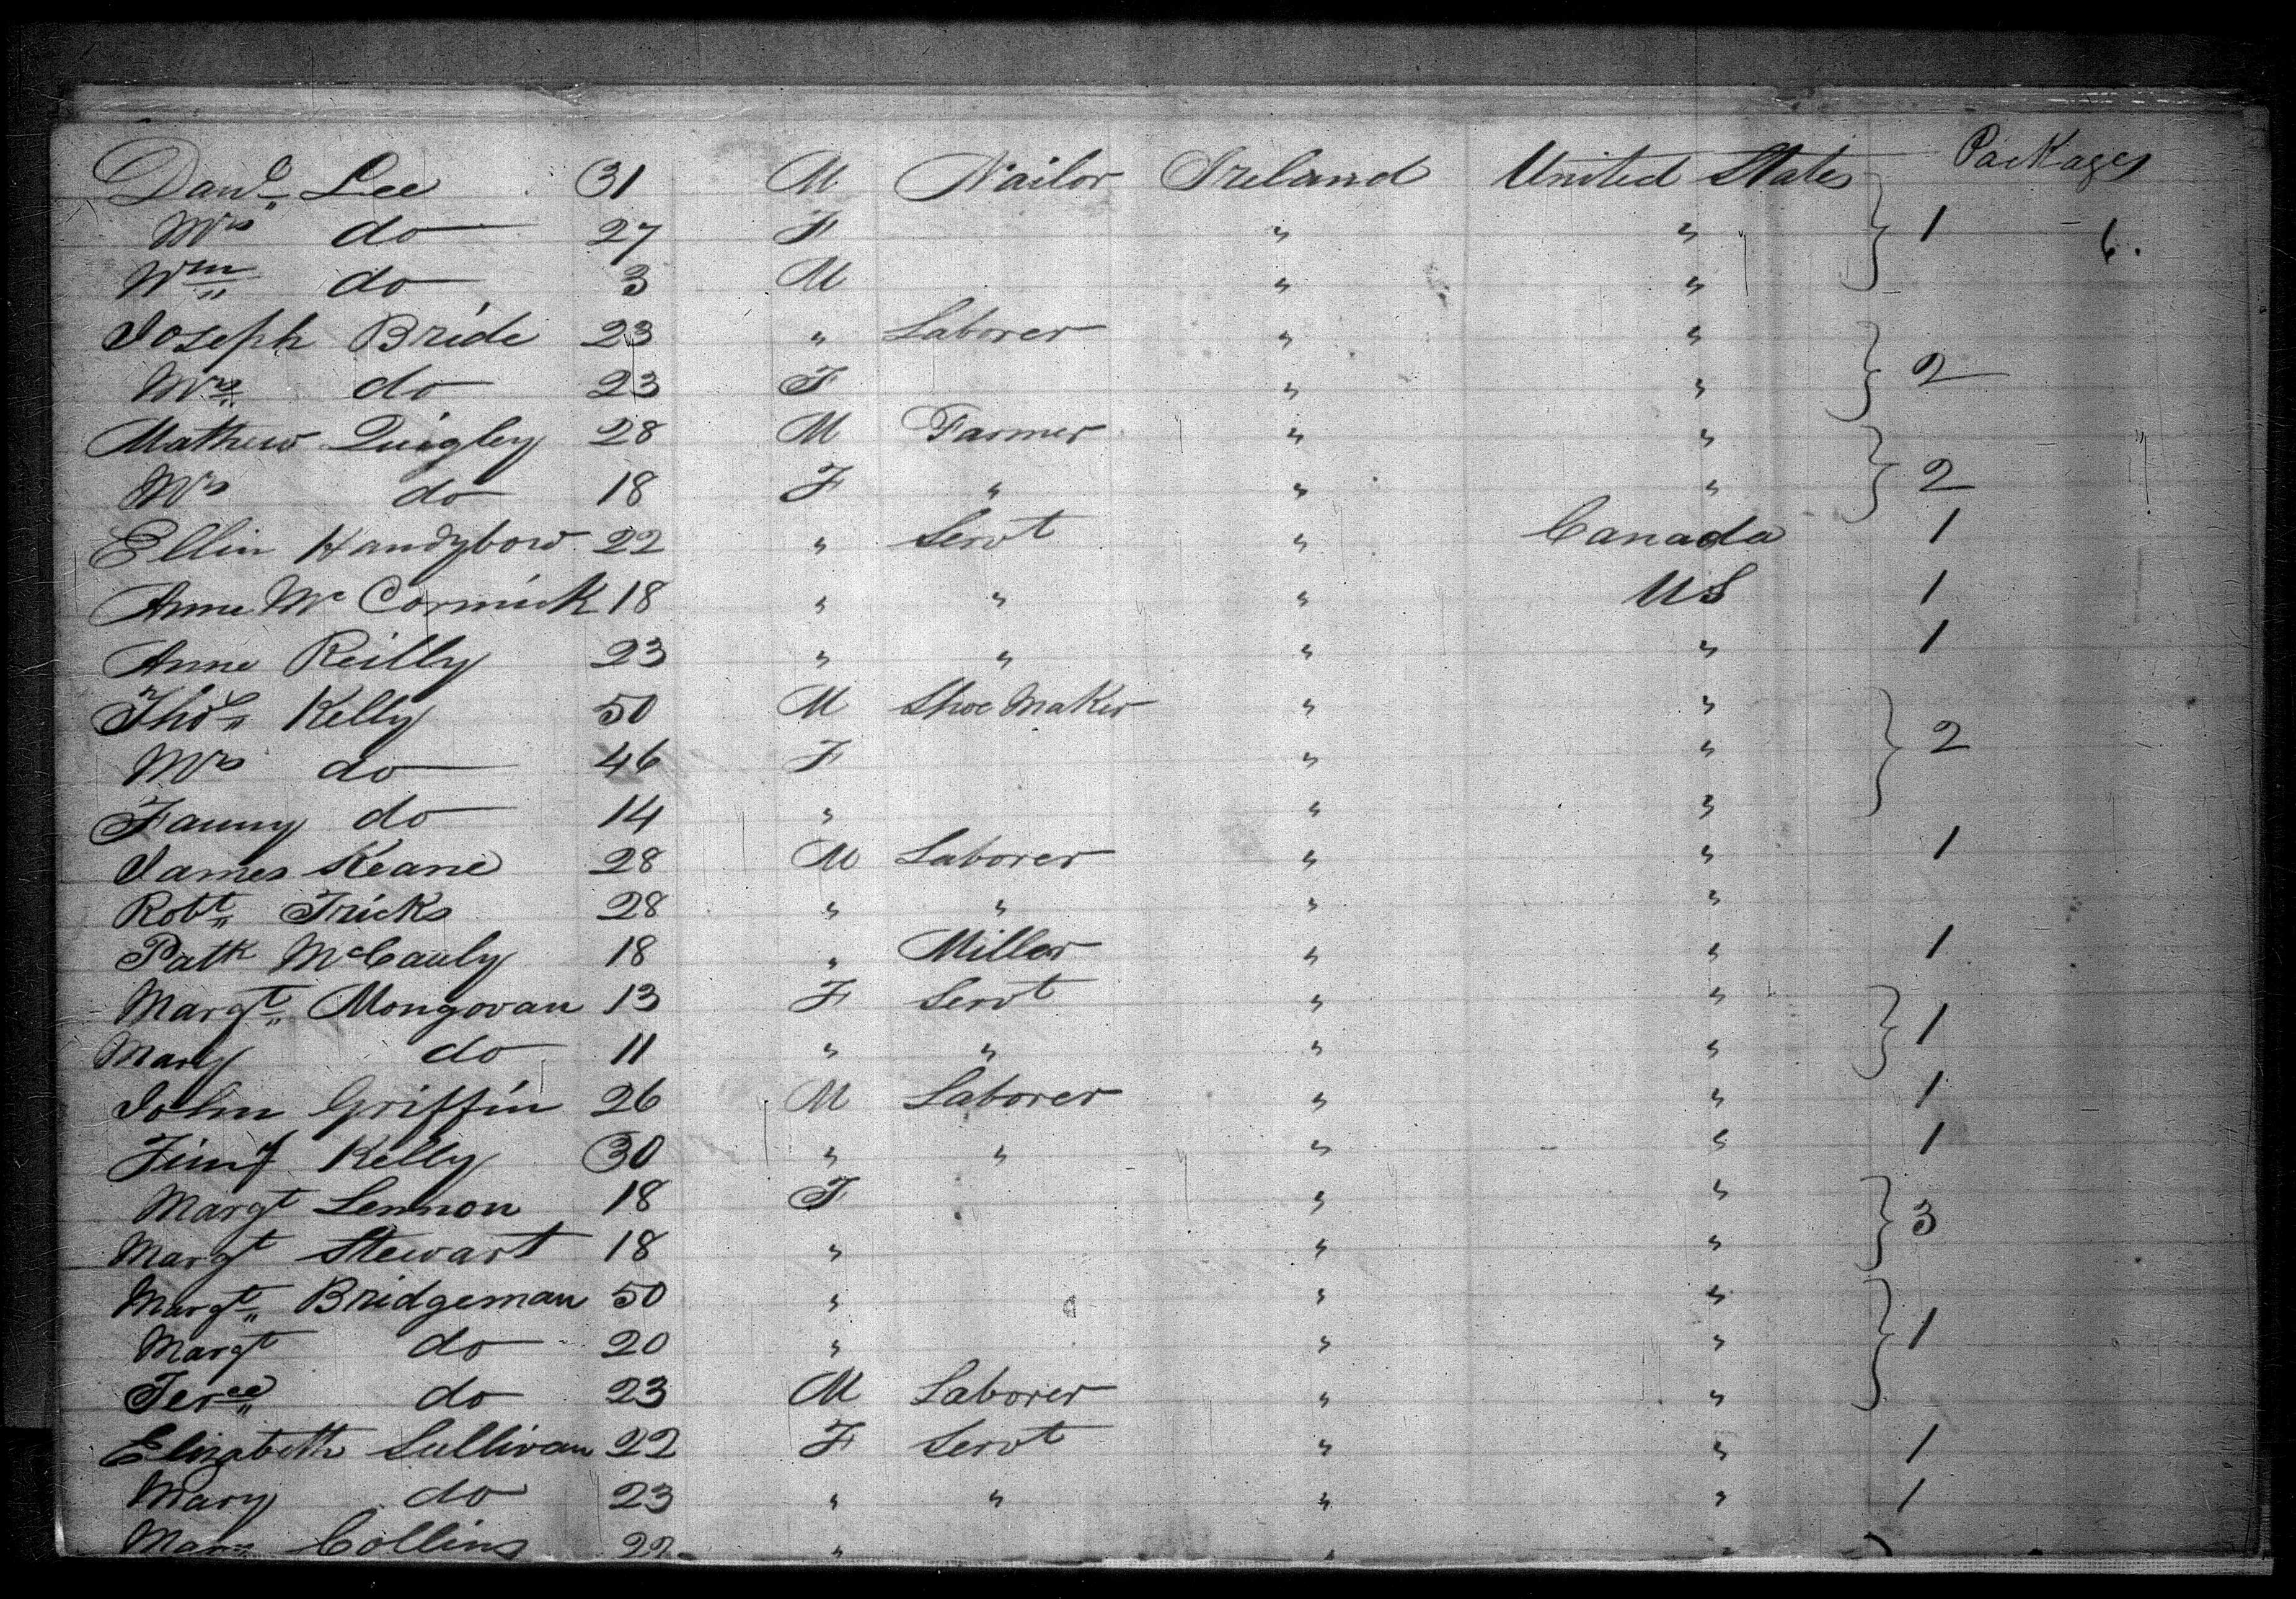 Packages
Danl Lee 31 M Nailor Ireland United States
Mrs do 27 F " " 1 6.
Wm do 3 M " "
Joseph Bride 23 " Laborer " "
Mrs do 23 F " " 2
Mathew Quigley 28 M Farmer " "
Mrs do 18 F " " " 2
Ellin Handybow 22 " Servt " Canada 1
Anne McCormick 18 " " " US 1
Anne Reilly 23 " " " " 1
Thos Kelly 50 M Shoe Maker " "
Mrs do 46 F " " 2
Fanny do 14 " " "
James Keane 28 M Laborer " " 1
Robt Fricks 28 " " " "
Patk McCauly 18 " Miller " " 1
Margt Mongovan 13 F Servt " " 1
Mary do 11 " " " "
John Griffin 26 M Laborer " " 1
Timy Kelly 30 " " " " 1
Margt Lennon 18 F " " 3
Margt Stewart 18 " " "
Margt Bridgeman 50 " " "
Margt do 20 " " " 1
Terce do 23 M Laborer " "
Elizabeth Sullivan 22 F Servt " " 1
Mary do 23 " " " " 1
Mary Collins 22 " " "